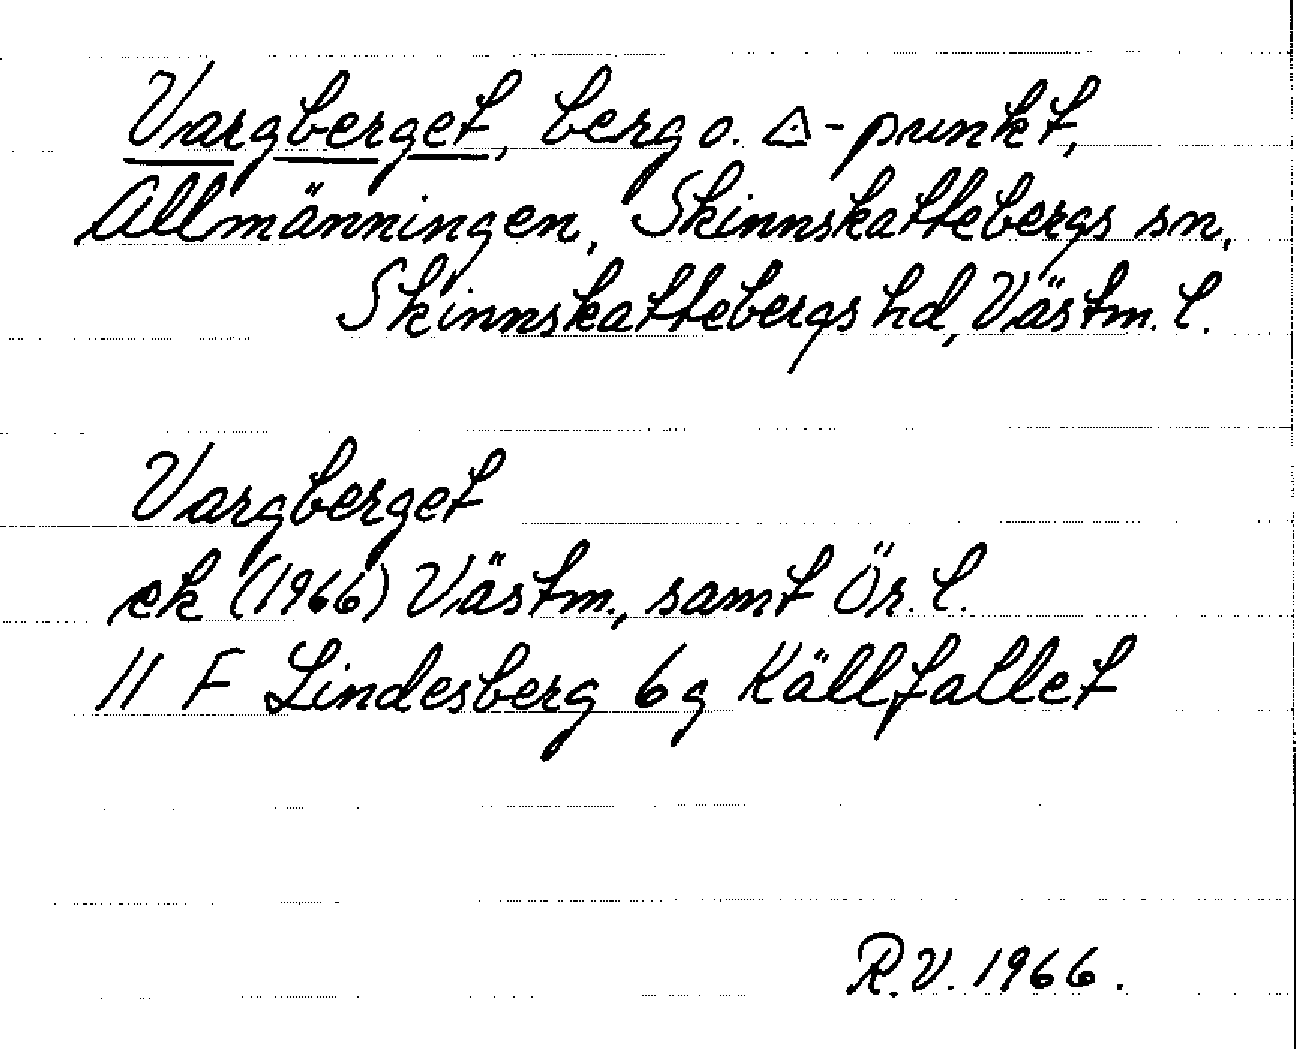 Vargberget, berg o. △-punkt,
Allmänningen, Skinnskattebergs sn,
Skinnskattebergs hd, Västm. l.
Vargberget
ek (1966) Västm., samt Ör. l.
11 F Lindesberg 6g Källfallet
R.V. 1966.